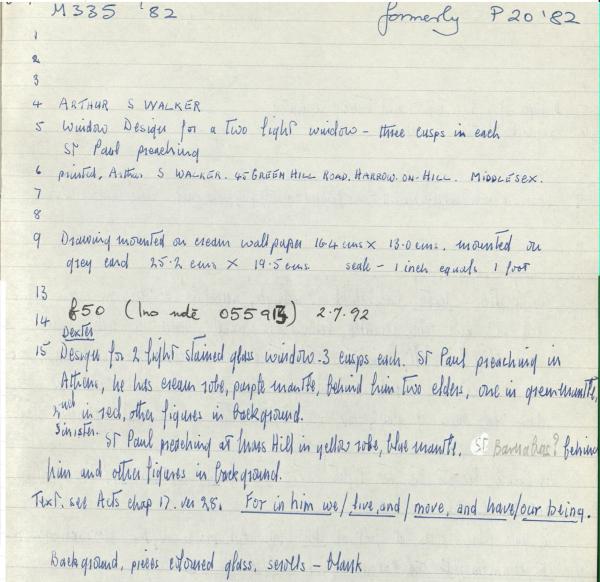 M335 '82 formerly P20'82
1
2
3
4 ARTHUR S WALKER
5 Window Design for a two light window - three cusps in each
St Paul preaching
6 printed, Arthur S WALKER. 45 GREEN HILL ROAD. HARROW. ON. HILL. MIDDLESEX.
7
8
9 Drawing mounted on cream wall paper 16.4 cms X 13.0 cms. mounted on
grey card 25.2 cms X 19.5 cms scale - 1 inch equals 1 foot
13
£50 (Ino ndē 055913) 2.7.92
14 Dexter
15 Design for 2 light stained glass window. 3 cusps each. St Paul preaching in
Athens, he has cream robe, purple mantle, behind him two elders, one in green mantle,
2nd in red, other figures in background.
Sinister. St Paul preaching at Mars Hill in yellow robe, blue mantle. St Barnabas? behind
him and other figures in background.
Text. see Acts chap 17. ver 28. For in him we/live, and/move, and have/our being.
Background, pieces coloured glass, scrolls - blank